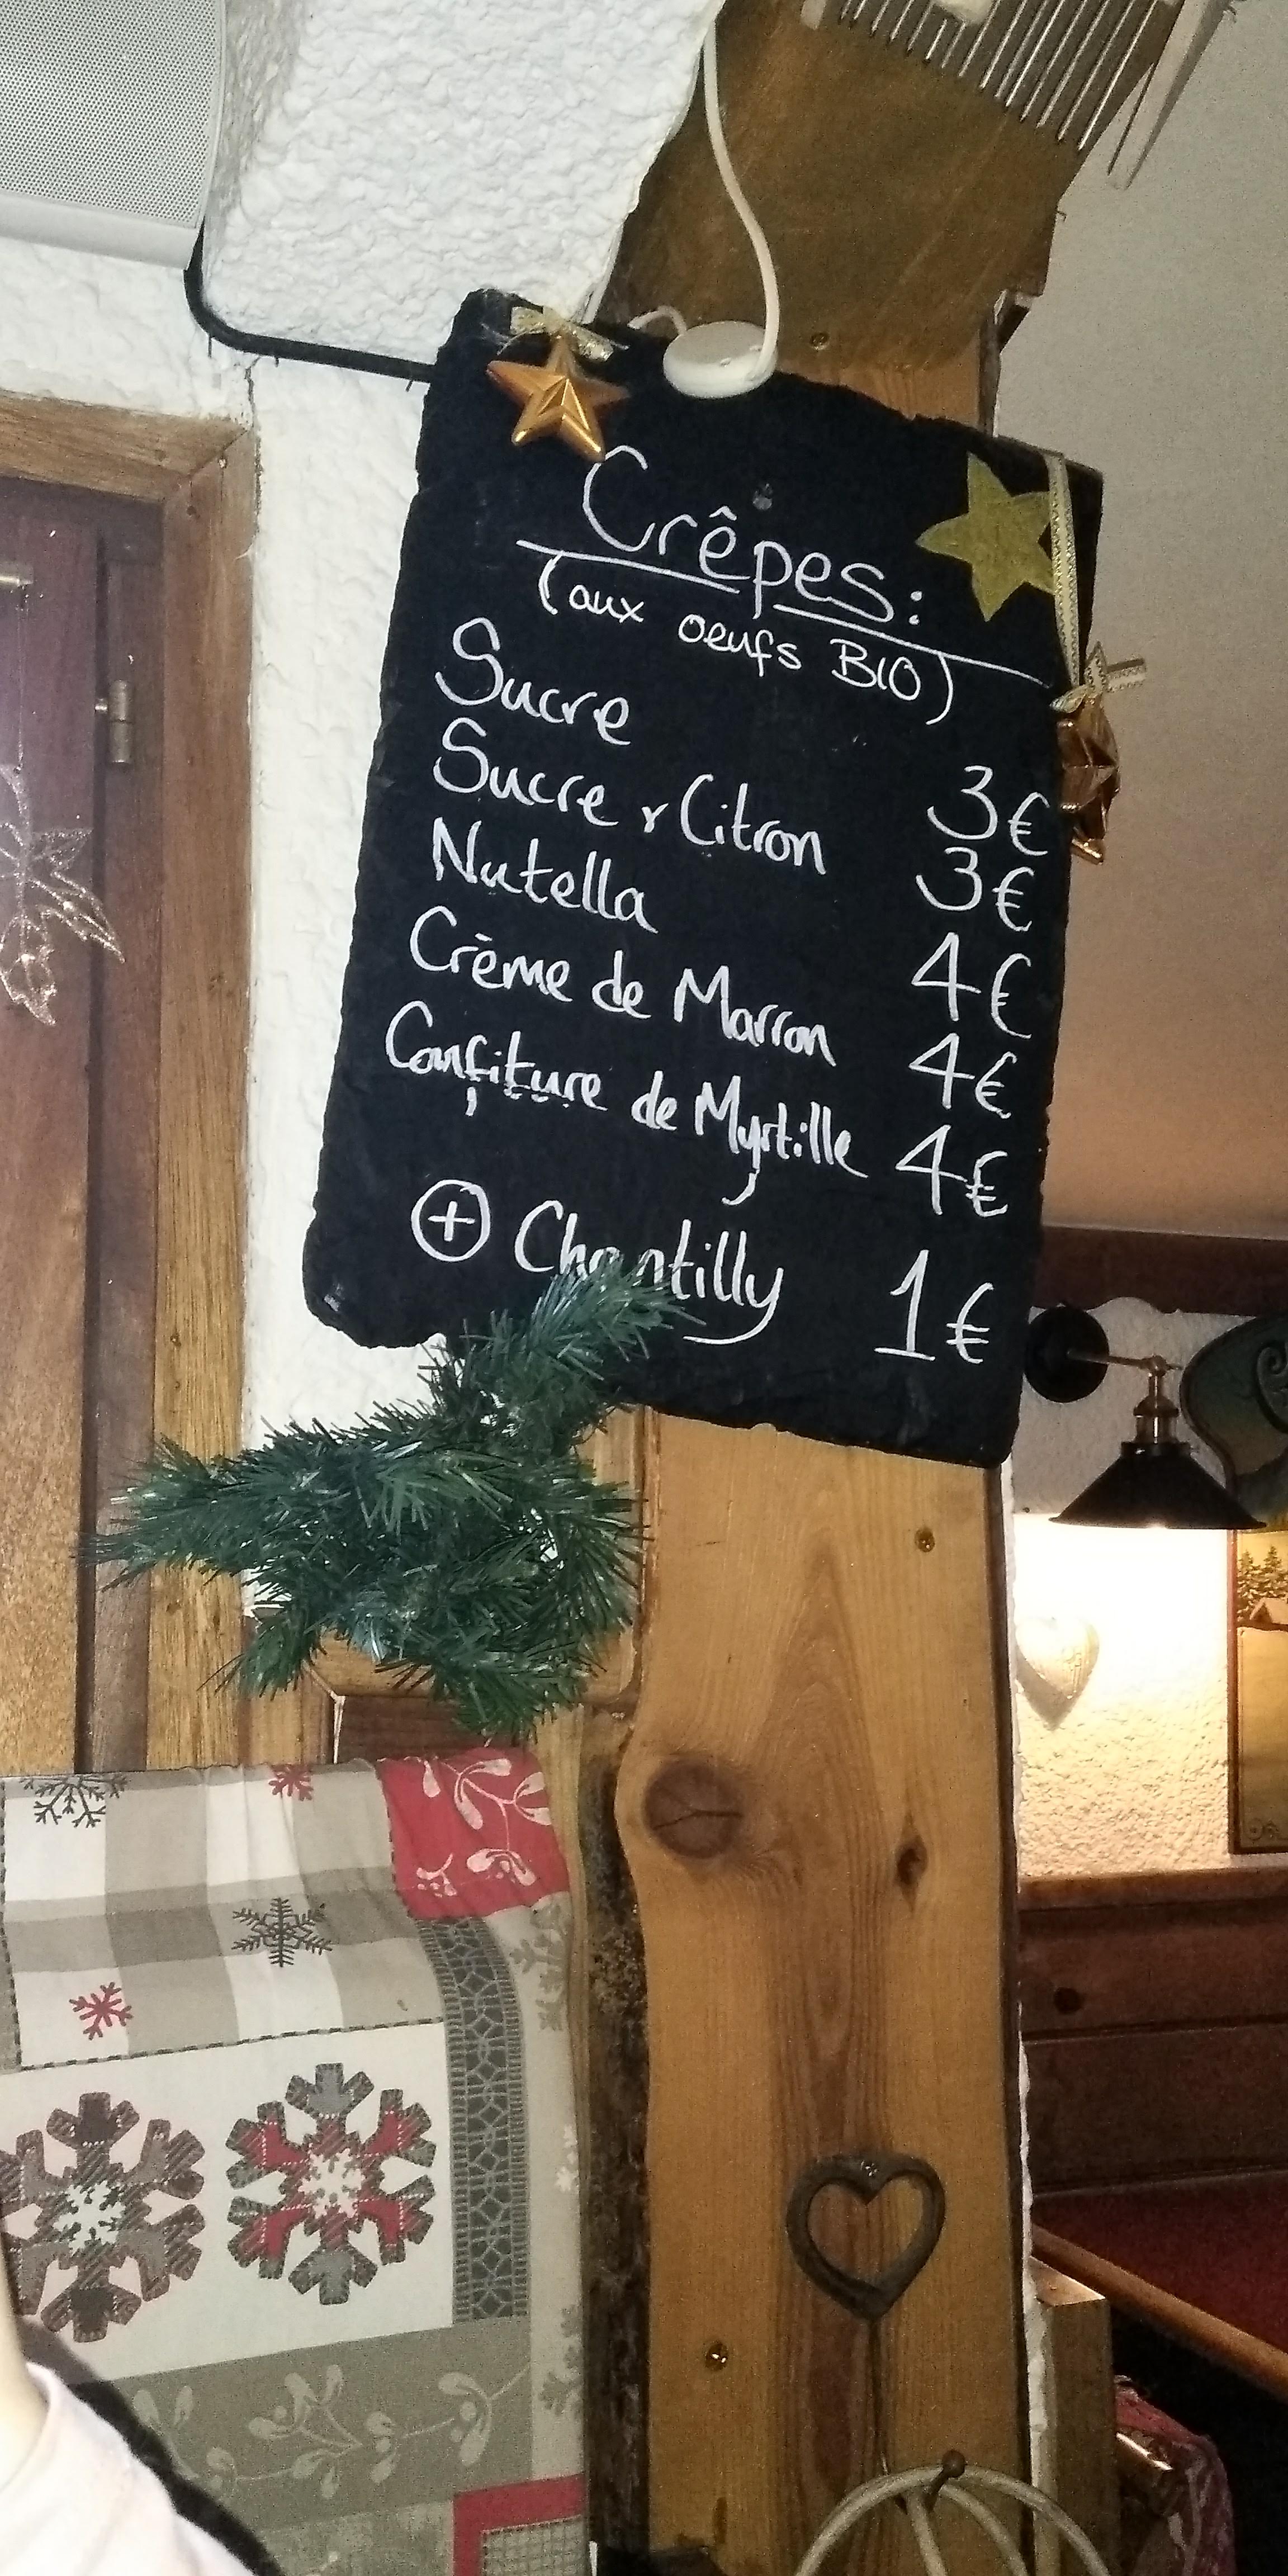 Crêpes:
(aux oeufs BIO)
Sucre 3€
Sucre & Citron 3€
Nutella 4€
Crème de Marron 4€
Confiture de Myrtille 4€
+ Chantilly 1€